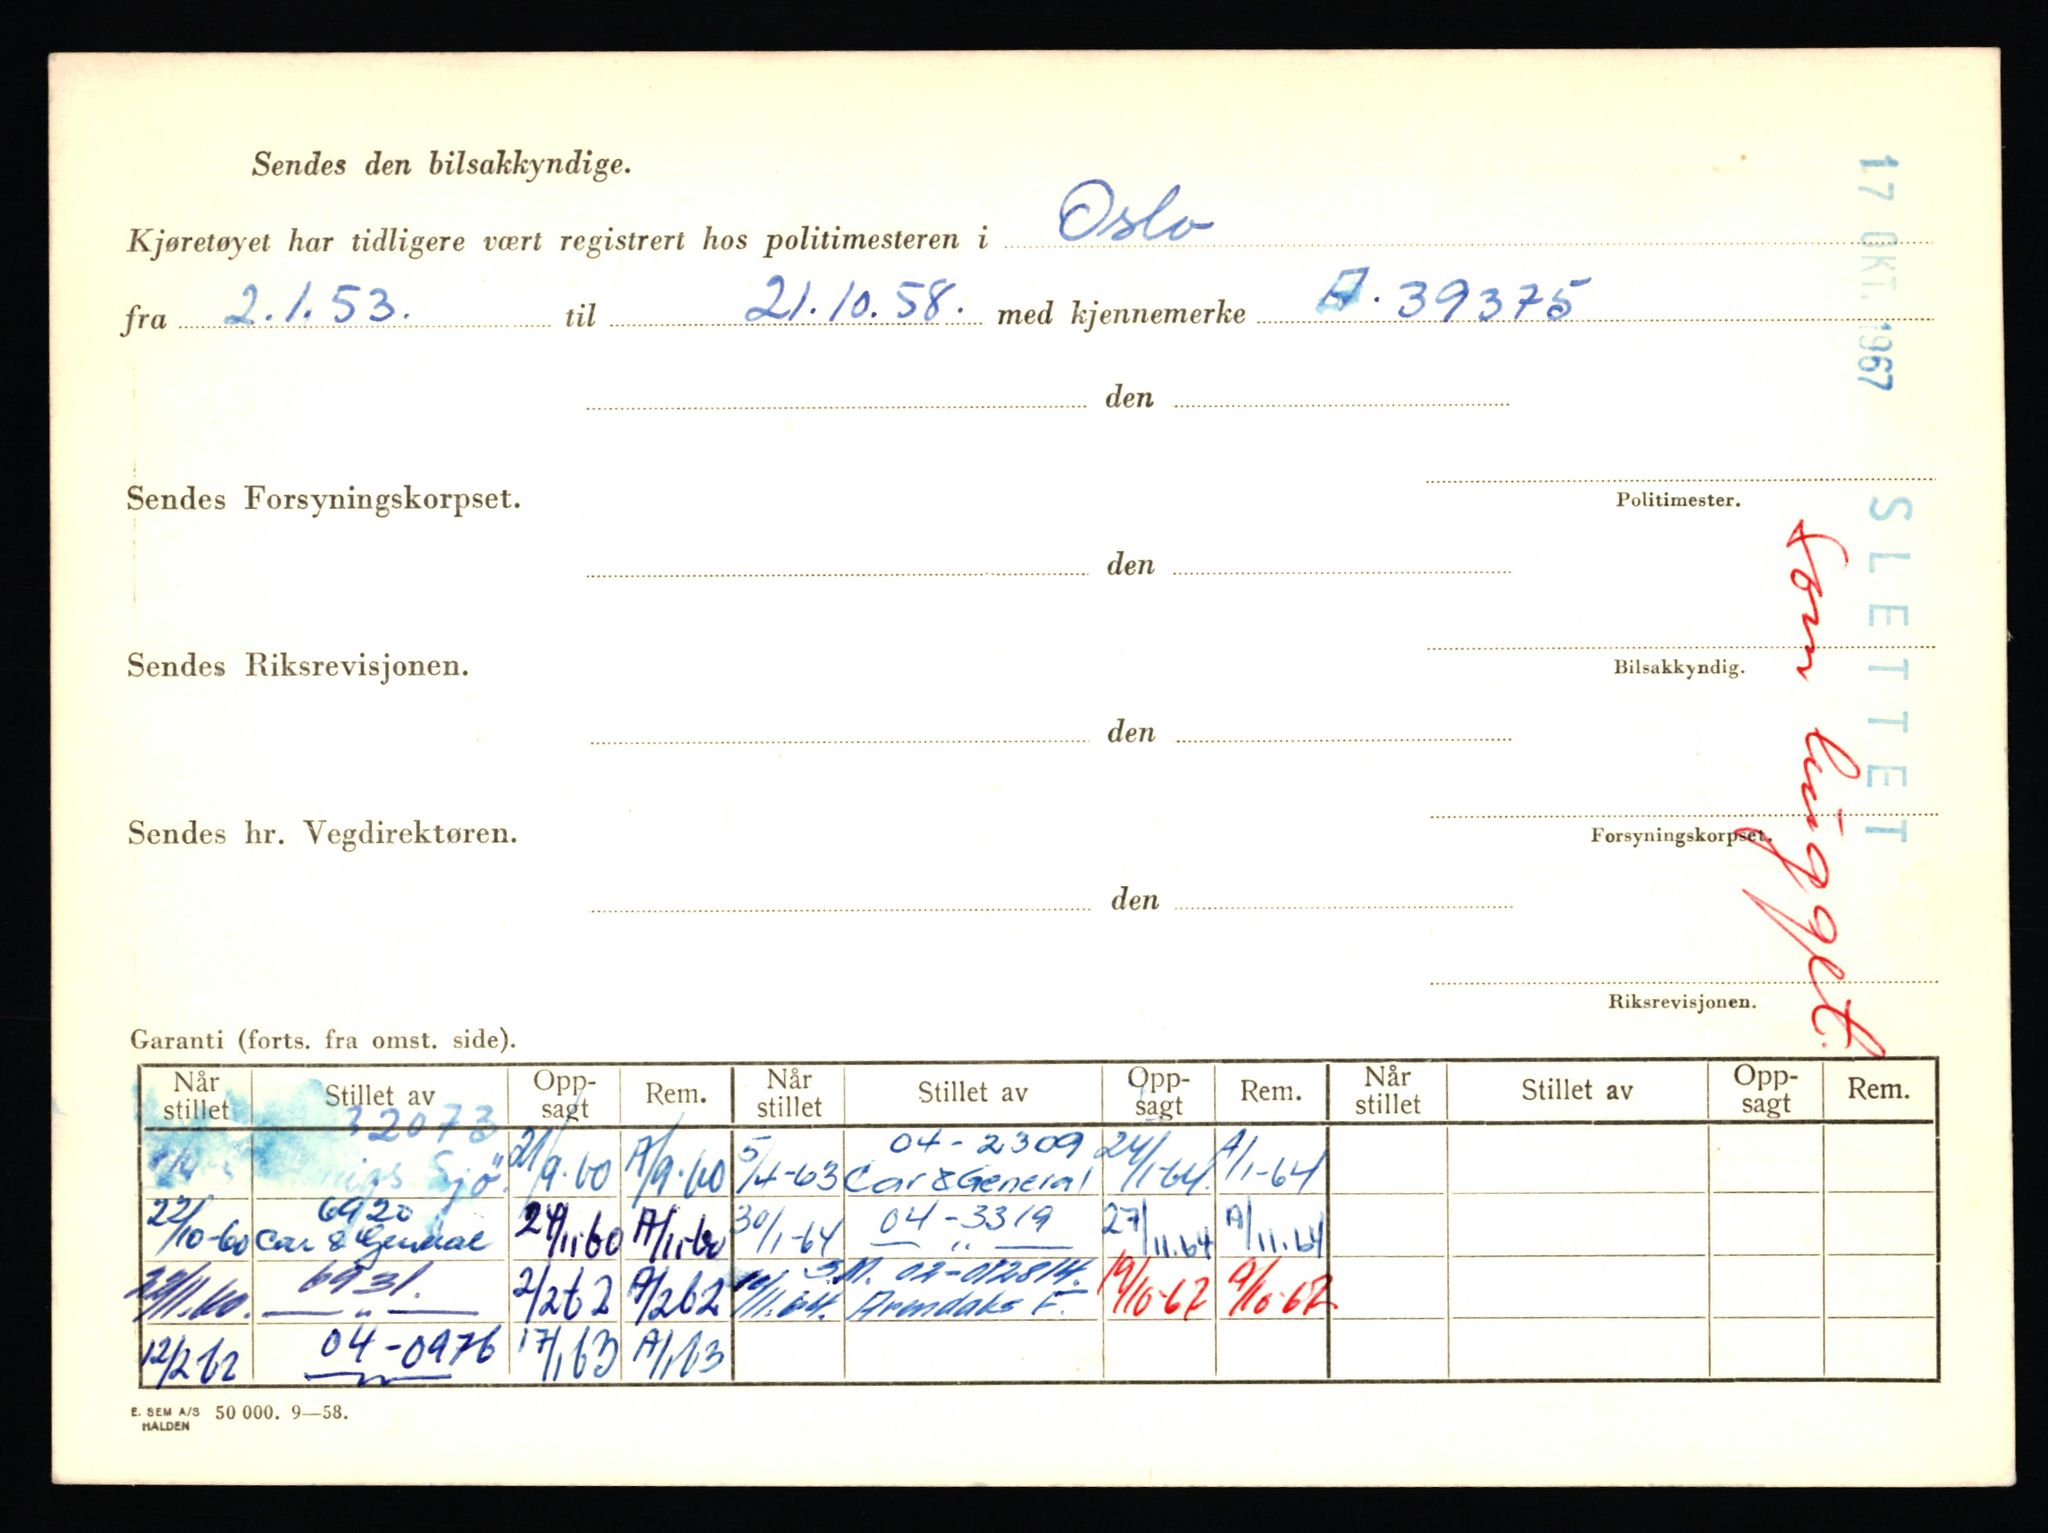 Sendes den bilsakkyndige.
Kjøretøyet har tidligere vært registrert hos politimesteren i Oslo
fra 2.1.53. til 21.10.58. med kjennemerke A. 39375
den
Politimester.
Sendes Forsyningskorpset.
den
Bilsakkyndig.
Sendes Riksrevisjonen.
den
Forsyningskorpset.
Sendes hr. Vegdirektøren.
den
Riksrevisjonen.
17 OKT. 1967 SLETTET
Garanti (forts. fra omst. side).
Når stillet Stillet av Opp-sagt Rem. Når stillet Stillet av Opp-sagt Rem. Når stillet Stillet av Opp-sagt Rem.
32073
Sjö. 21/9.60 A/9.60 5/4-63 04-2309 Car & General 24/1-64. A/1-64
22/10-60 6920 Car & General 24/11.60 A/11.60 30/1-64 04-3319 — " — 27/11.64 A/11.64
6931. — " — 2/2 62 A/2 62 M. 02-012814. Arendals F. 19/10-67 A/10-67
12/2 62 04-0976 — " — 17/1 63 A/1 63
E. SEM A/S HALDEN 50 000. 9—58.